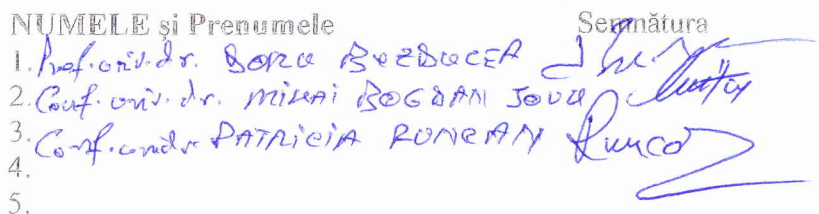 NUMELE și Prenumele Semnătura
1. Prof. univ. dr. DORU BUZDUCEA
2. Conf. univ. dr. MIHAI BOGDAN IOVU
3. Conf. univ. dr. PATRICIA RUNCAN Runcan
4.
5.